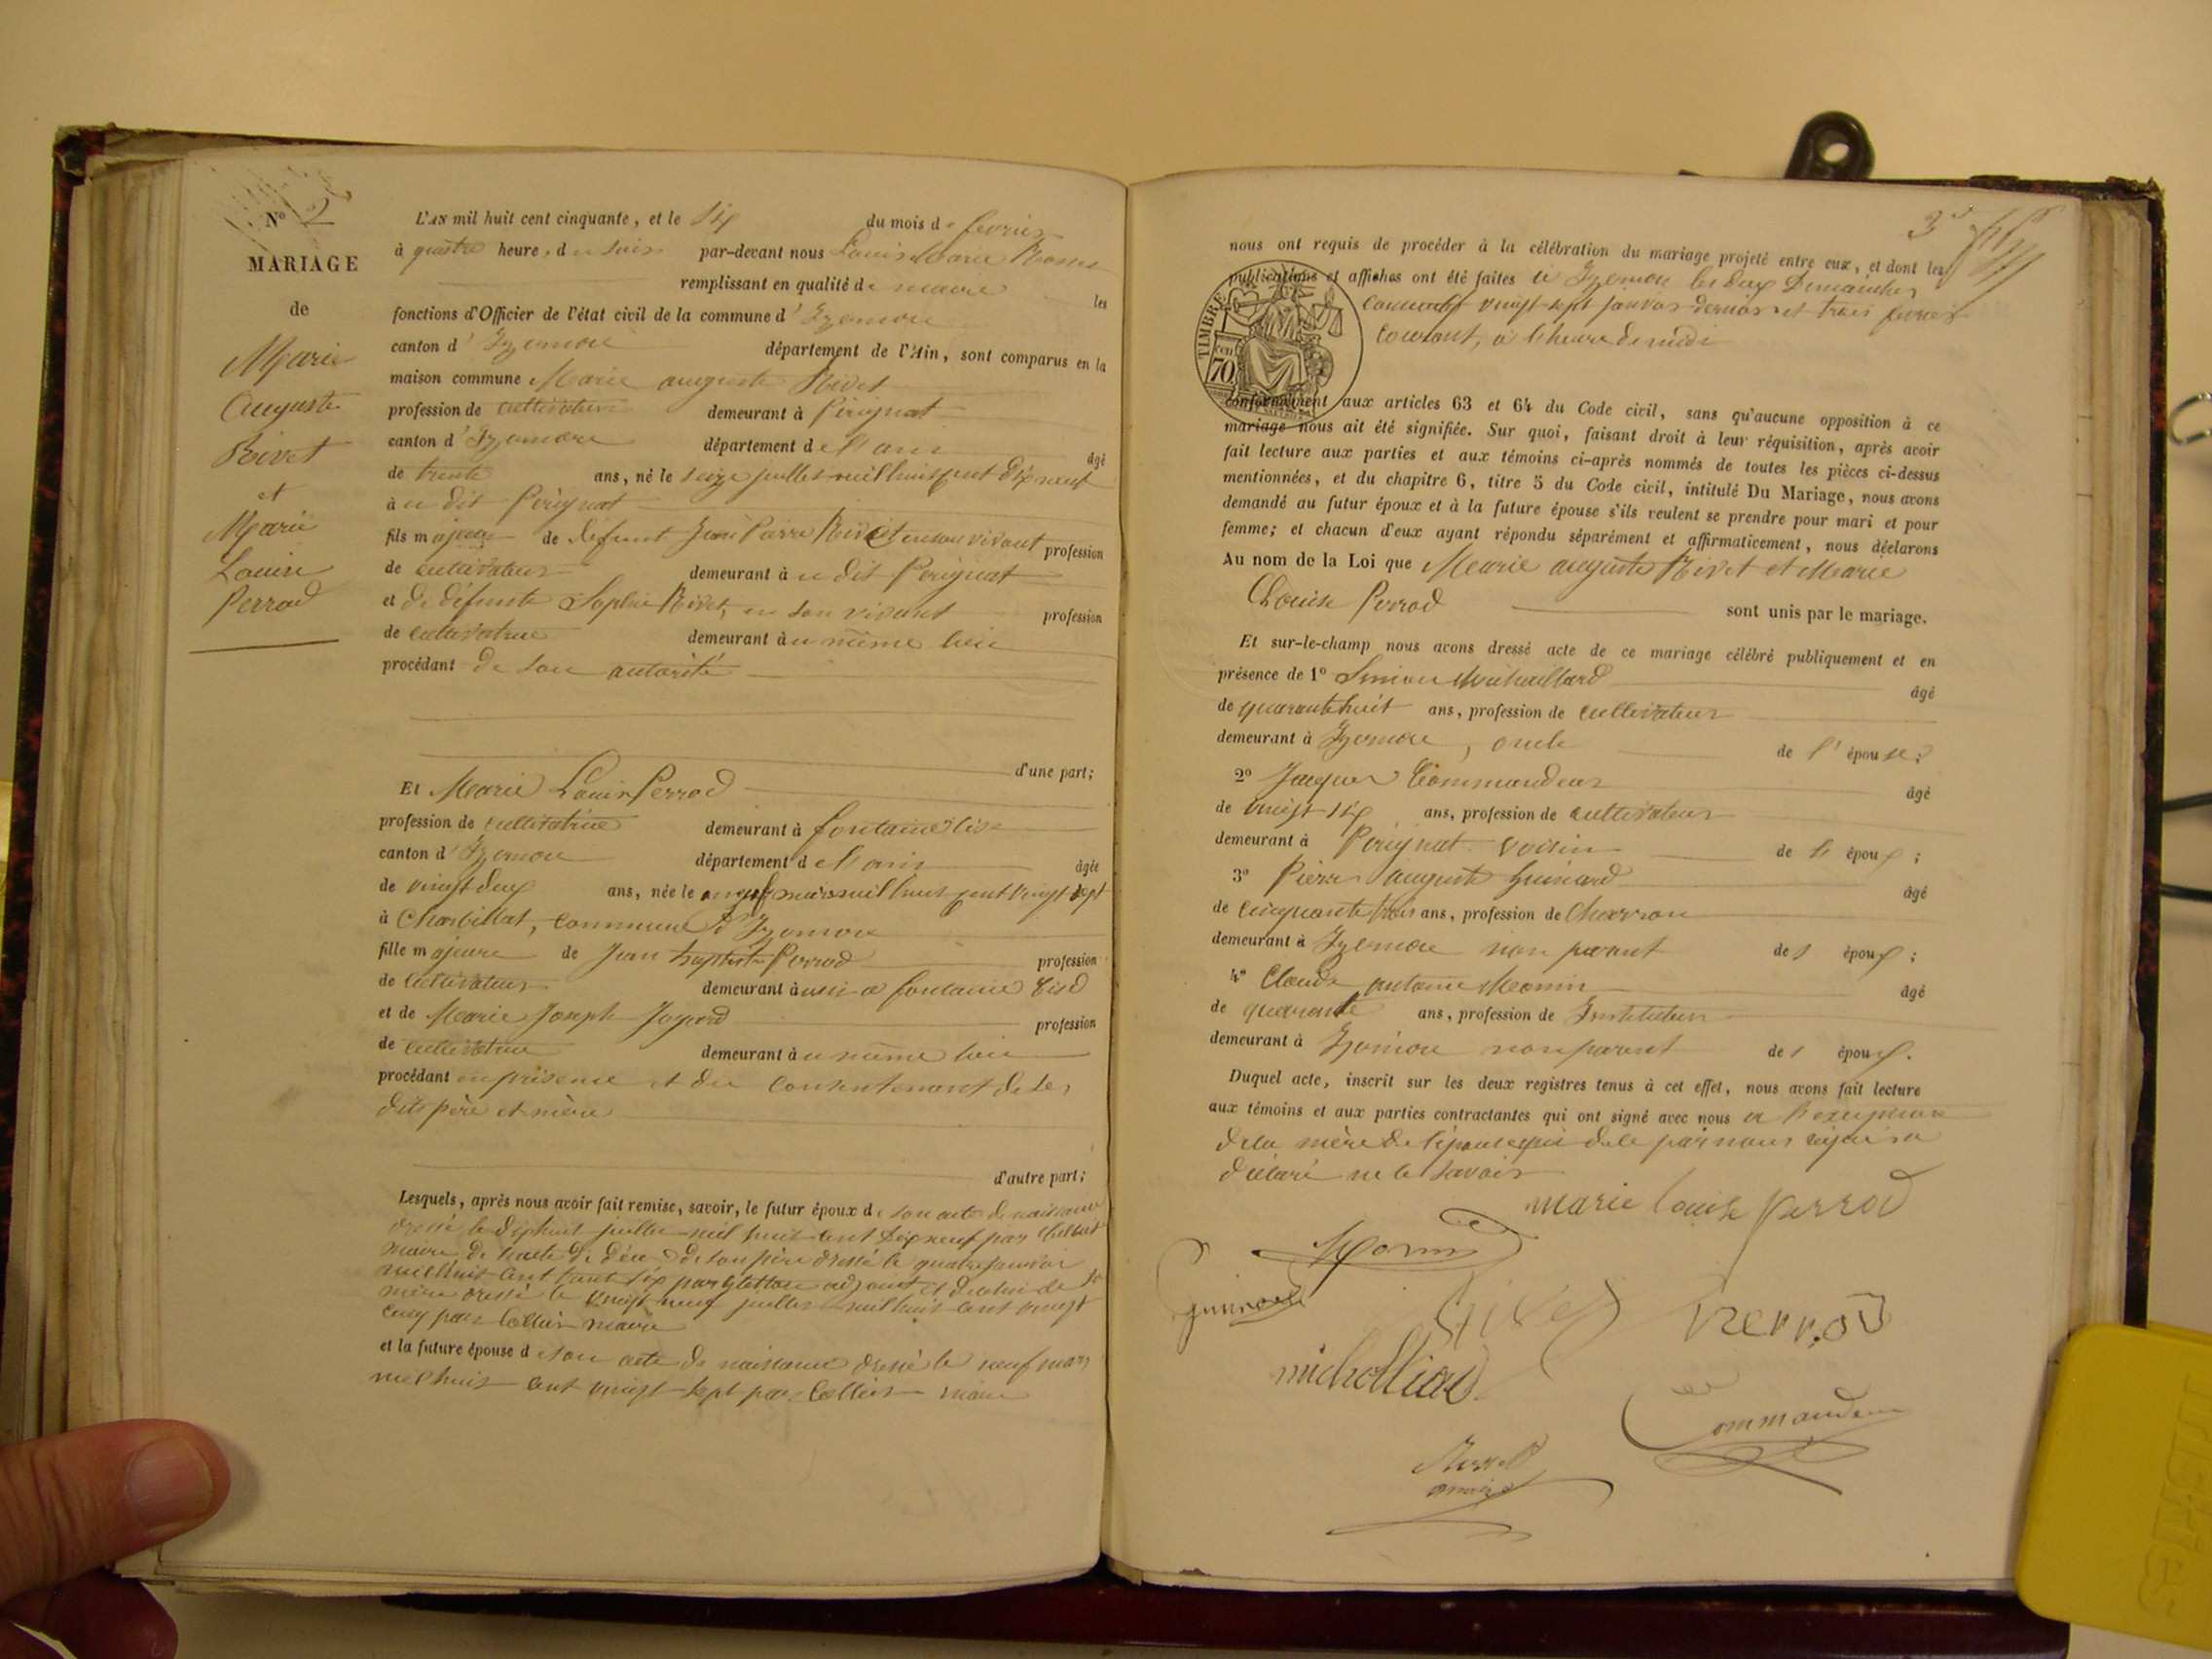 N° 2
MARIAGE
de
Marie
Auguste
Rivet
et
Marie
Louise
Perrod
L'AN mil huit cent cinquante, et le six du mois de fevrier
à quatre heure, du soir par-devant nous Louis Marie
remplissant en qualité de maire les
fonctions d'Officier de l'état civil de la commune d'Izernore
canton d'Izernore département de l'Ain, sont comparus en la
maison commune Marie auguste Rivet
profession de cultivateur demeurant à Pérignat
canton d'Izernore département de l'ain âgé
de trente ans, né le seize juillet mil huit cent dix neuf
à u dit Pérignat
fils majeur de défunt Jean Pierre Rivet en son vivant profession
de cultivateur demeurant à u dit Perignat
et de défunte Sophie Rivet, en son vivant profession
de cultivatrice demeurant à u même lieu
procédant de son autorité
d'une part;
Et Marie Louise Perrod
profession de cultivatrice demeurant à fontaine
canton d'Izernore département de l'ain âgée
de vingt deux ans, née le neuf mars mil huit cent vingt sept
à Charbillat, commune d'Izernore
fille majeure de Jean baptiste Perrod profession
de cultivateur demeurant à ussi a fontaine
et de Marie Joseph profession
de cultivatrice demeurant à u même lieu
procédant en présence et du consentement de ses
dits père et mère
d'autre part;
Lesquels, après nous avoir fait remise, savoir, le futur époux de son acte de naissance
dressé le dix huit juillet mil huit cent dix neuf par
maire de l'acte de décès de son père dressé le quatre janvier
mil huit cent trente six par adjoint et de celui de sa
mère dressé le vingt neuf juillet mil huit cent vingt
cinq par Cellier maire
et la future épouse de son acte de naissance dressé le neuf mars
mil huit cent vingt sept par Cellier maire
nous ont requis de procéder à la célébration du mariage projeté entre eux, et dont les
publications et affiches ont été faites à Izernore les deux Dimanches
vingt-sept janvier dernier et trois fevrier
courant, à l'heure de midi
TIMBRE
70
conformément aux articles 63 et 64 du Code civil, sans qu'aucune opposition à ce
mariage nous ait été signifiée. Sur quoi, faisant droit à leur réquisition, après avoir
fait lecture aux parties et aux témoins ci-après nommés de toutes les pièces ci-dessus
mentionnées, et du chapitre 6, titre 5 du Code civil, intitulé Du Mariage, nous avons
demandé au futur époux et à la future épouse s'ils veulent se prendre pour mari et pour
femme; et chacun d'eux ayant répondu séparément et affirmativement, nous déclarons
Au nom de la Loi que Marie auguste Rivet et Marie
Louise Perrod sont unis par le mariage.
Et sur-le-champ nous avons dressé acte de ce mariage célébré publiquement et en
présence de 1° Simon âgé
de quarante huit ans, profession de cultivateur
demeurant à Izernore, oncle de l'épouse;
2° Jacques Commandeur âgé
de vingt six ans, profession de cultivateur
demeurant à Perignat voisin de l'époux;
3° Pierre auguste Guinard âgé
de cinquante trois ans, profession de Charron
demeurant à Izernore non parent de l'époux;
4° Claude antoine Monin âgé
de quarante ans, profession de Instituteur
demeurant à Izernore non parent de l'époux.
Duquel acte, inscrit sur les deux registres tenus à cet effet, nous avons fait lecture
aux témoins et aux parties contractantes qui ont signé avec nous a l'exception
de la mère de l'épouse qui de le par nous requise a
déclaré ne le savoir
marie louise perrod
Monin
guinard
Rivet
Perrod
micholliard
Commandeur